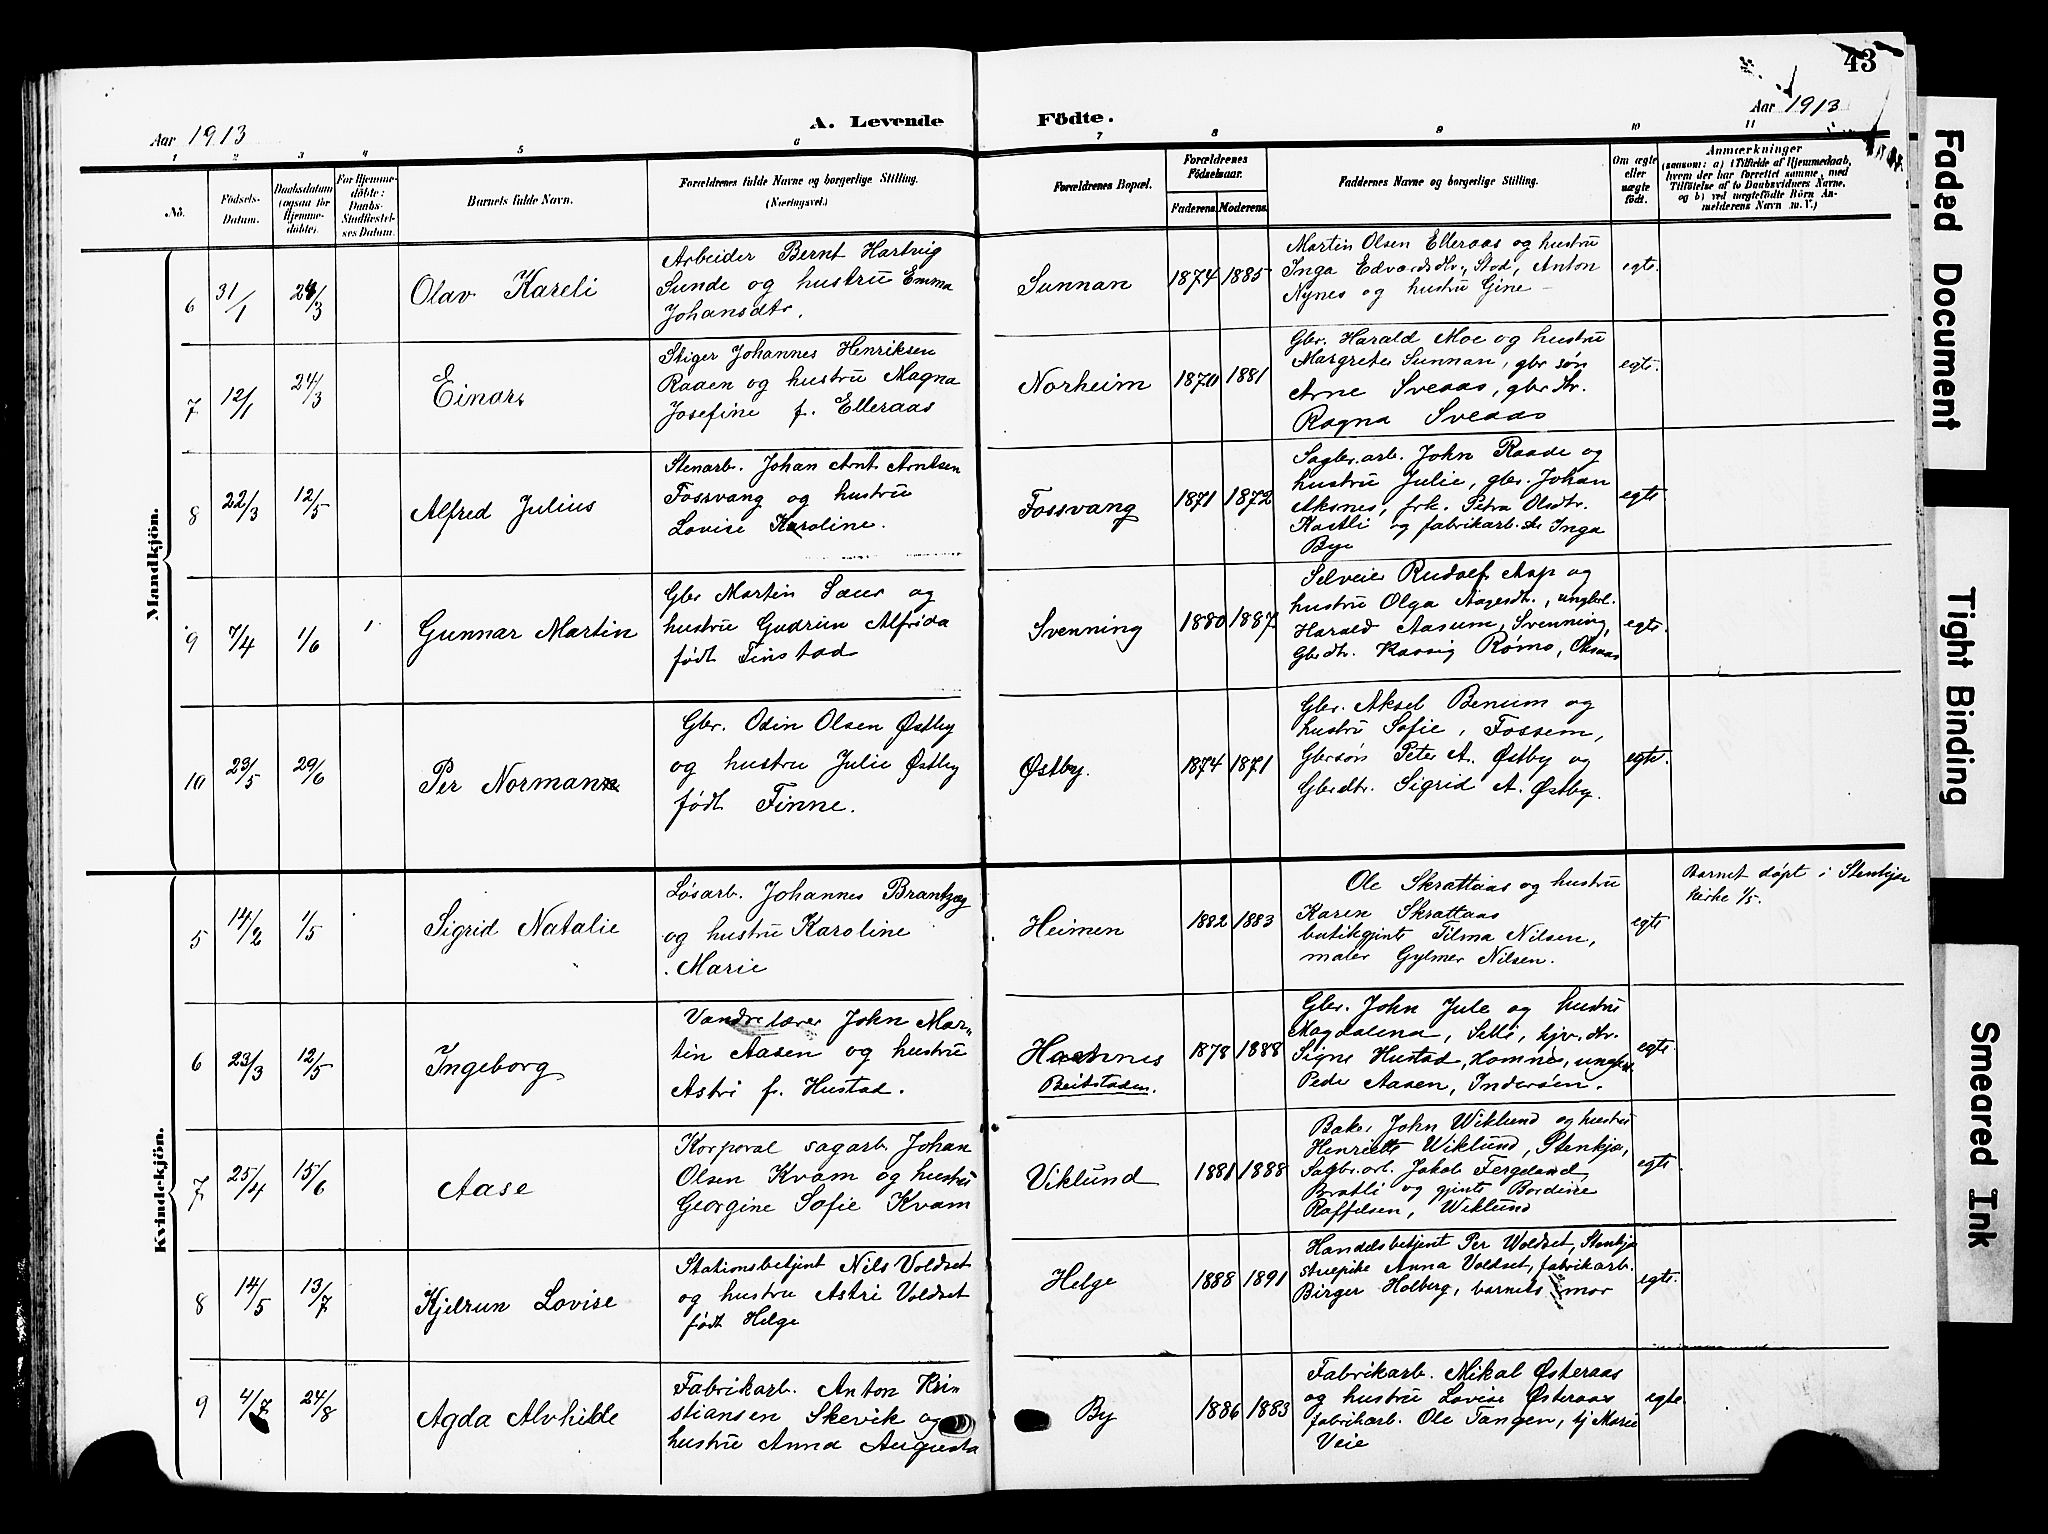 43
Aar 1913
A. Levende Födte.
Aar 1913
1 2 3 4 5 6 7 8 9 10 11
No.
Födsels-
Datum.
Daabsdatum
(ogsaa for
Hjemme-
döbte).
For Hjemme-
döbte:
Daabs-
Stadfæstel-
ses Datum.
Barnets fulde Navn.
Forældrenes fulde Navne og borgerlige Stilling.
(Næringsvei.)
Forældrenes Bopæl.
Forældrenes
Födselsaar.
Faderens. Moderens.
Faddernes Navne og borgerlige Stilling.
Om ægte
eller
uægte
födt.
Anmærkninger
(saasom: a) i Tilfælde af Hjemmedaab,
hvem der har forrettet samme, med
Tilföielse af to Daabsvidners Navne,
og b) ved uægtefödte Börn An-
melderens Navn m. V.)
Mandkjön.
6 31/1 24/3
Olav Kareli
Arbeider Bernt Hartvig
Sunde og hustru Emma
Johansdtr.
Sunnan
1874 1885
Martin Olsen Elleraas og hustru
Inga Edvardsdtr., Stod, Anton
Nynes og hustru Gine
egte.
7 12/1 24/3
Einar
Stiger Johannes Henriksen
Raaen og hustru Magna
Josefine f. Elleraas
Norheim
1870 1881
Gbr. Harald Moe og hustru
Margrete Sunnan, gbr søn
Arne Sveaas, gbr.dtr.
Ragna Sveaas
egte.
8 22/3 12/5
Alfred Julius
Stenarb. Johan Arnt Arntsen
Fossvang og hustru
Lovise Karoline.
Fossvang
1871 1872
Sagbr.arb. John Raade og
hustru Julie, gbr. Johan
Aksnes, frk. Petra Olsdtr.
Kastli og fabrikarb. Inga
Bye
egte
9 7/4 1/6 1
Gunnar Martin
Gbr Martin Saur og
hustru Gudrun Alfrida
født Finstad
Svenning
1880 1887
Selveier Rudolf Asp og
hustru Olga Aagesdtr., ungkrl.
Harald Aasum, Svenning,
Gbrdtr. Rømo,
egte.
10 23/5 29/6
Per Normann
Gbr. Odin Olsen Østby
og hustru Julie Østby
født Finne.
Østby.
1874 1871
Gbr. Aksel Benum og
hustru Sofie, Fossem,
Gbrsøn Peter A. Østby og
Gbrdtr. Sigrid A. Østby.
egte.
Kvindekjön.
5 14/2 1/5
Sigrid Natalie
Løsarb. Johannes Brantzæg
og hustru Karoline
Marie
Heimen
1882 1883
Ole Skrattaas og hustru
Karen Skrattaas
butikgjente Tilma Nilsen,
maler Gylmer Nilsen.
egte
Barnet døpt i Stenkjær
kirke 1/5.
6 23/3 12/5
Ingeborg
Vandrelærer John Mar-
tin Aasen og hustru
Astri f. Hustad.
Beitstaden.
1878 1888
Gbr. John Jule og hustru
Magdalena, Selli, kjv. dtr.
Signe Hustad, Homnes, ungkrl.
Peder Aasen, Inderøen.
egte.
7 25/4 15/6
Aase
Korporal sagarb. Johan
Olsen Kvam og hustru
Georgine Sofie Kvam
Viklund
1881 1888
Baker John Wiklund og hustru
Henriette Wiklund, Stenkjær,
Sagbr.arb. Jakob Fergeland,
Bratli og gjente Bordine
Raffelsen, Wiklund
egte.
8 14/5 13/7
Kjelrun Lovise
Stationsbetjent Nils Voldset
og hustru Astri Voldset
født Helge
Helge
1888 1891
Handelsbetjent Per Woldset, Stenkjær
stuepike Anna Voldset, fabrikarb.
Birger Holberg, barnets mor
egte.
9 4/7 24/8
Agda Alvhilde
Fabrikarb. Anton Kri-
stiansen Skevik og
hustru Anna Augusta
By
1886 1883
Fabrikarb. Mikal Østeraas
og hustru Lovise Østeraas
fabrikarb. Ole Tangen, tj Marie
Veie
egte.
Faded Document
Tight Binding
Smeared Ink